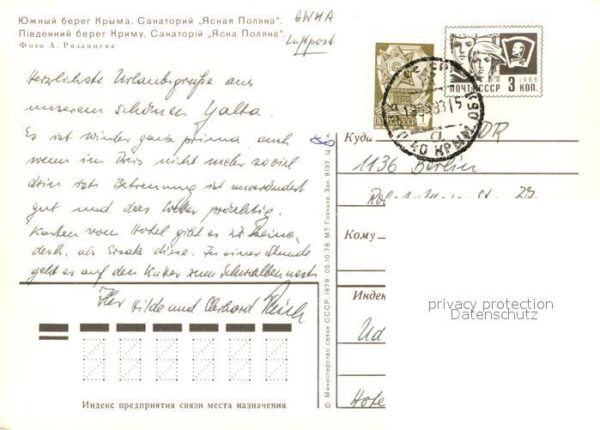 Южный берег Крыма. Санаторий „Ясная Поляна".
Південний берег Криму. Санаторій „Ясна Поляна".
Фото А. Рязанцева
Luftpost
Herzlichste Urlaubsgrüße aus
unserem schönen Yalta.
Es ist wieder ganz prima, auch
wenn im Preis nicht mehr so viel
drin ist. Betreuung ist unverändert
gut und das Wetter prächtig.
Karten vom Hotel gibt es z.Z. keine,
desh. als Ersatz diese. In einer Stunde
geht es auf den Kutter zum Schwalbennest
Ihre Hilde und Eberhard
Индекс предприятия связи места назначения
© Министерство связи СССР, 1979 05.10.78. МТ Гознака. Зак. 8137. Ц.
1966
ПОЧТА СССР 3 КОП.
СССР
КРЫМ. ОБЛ.
Куда DR
1136 Berlin
Кому
Индек
Ud
Hote
privacy protection
Datenschutz